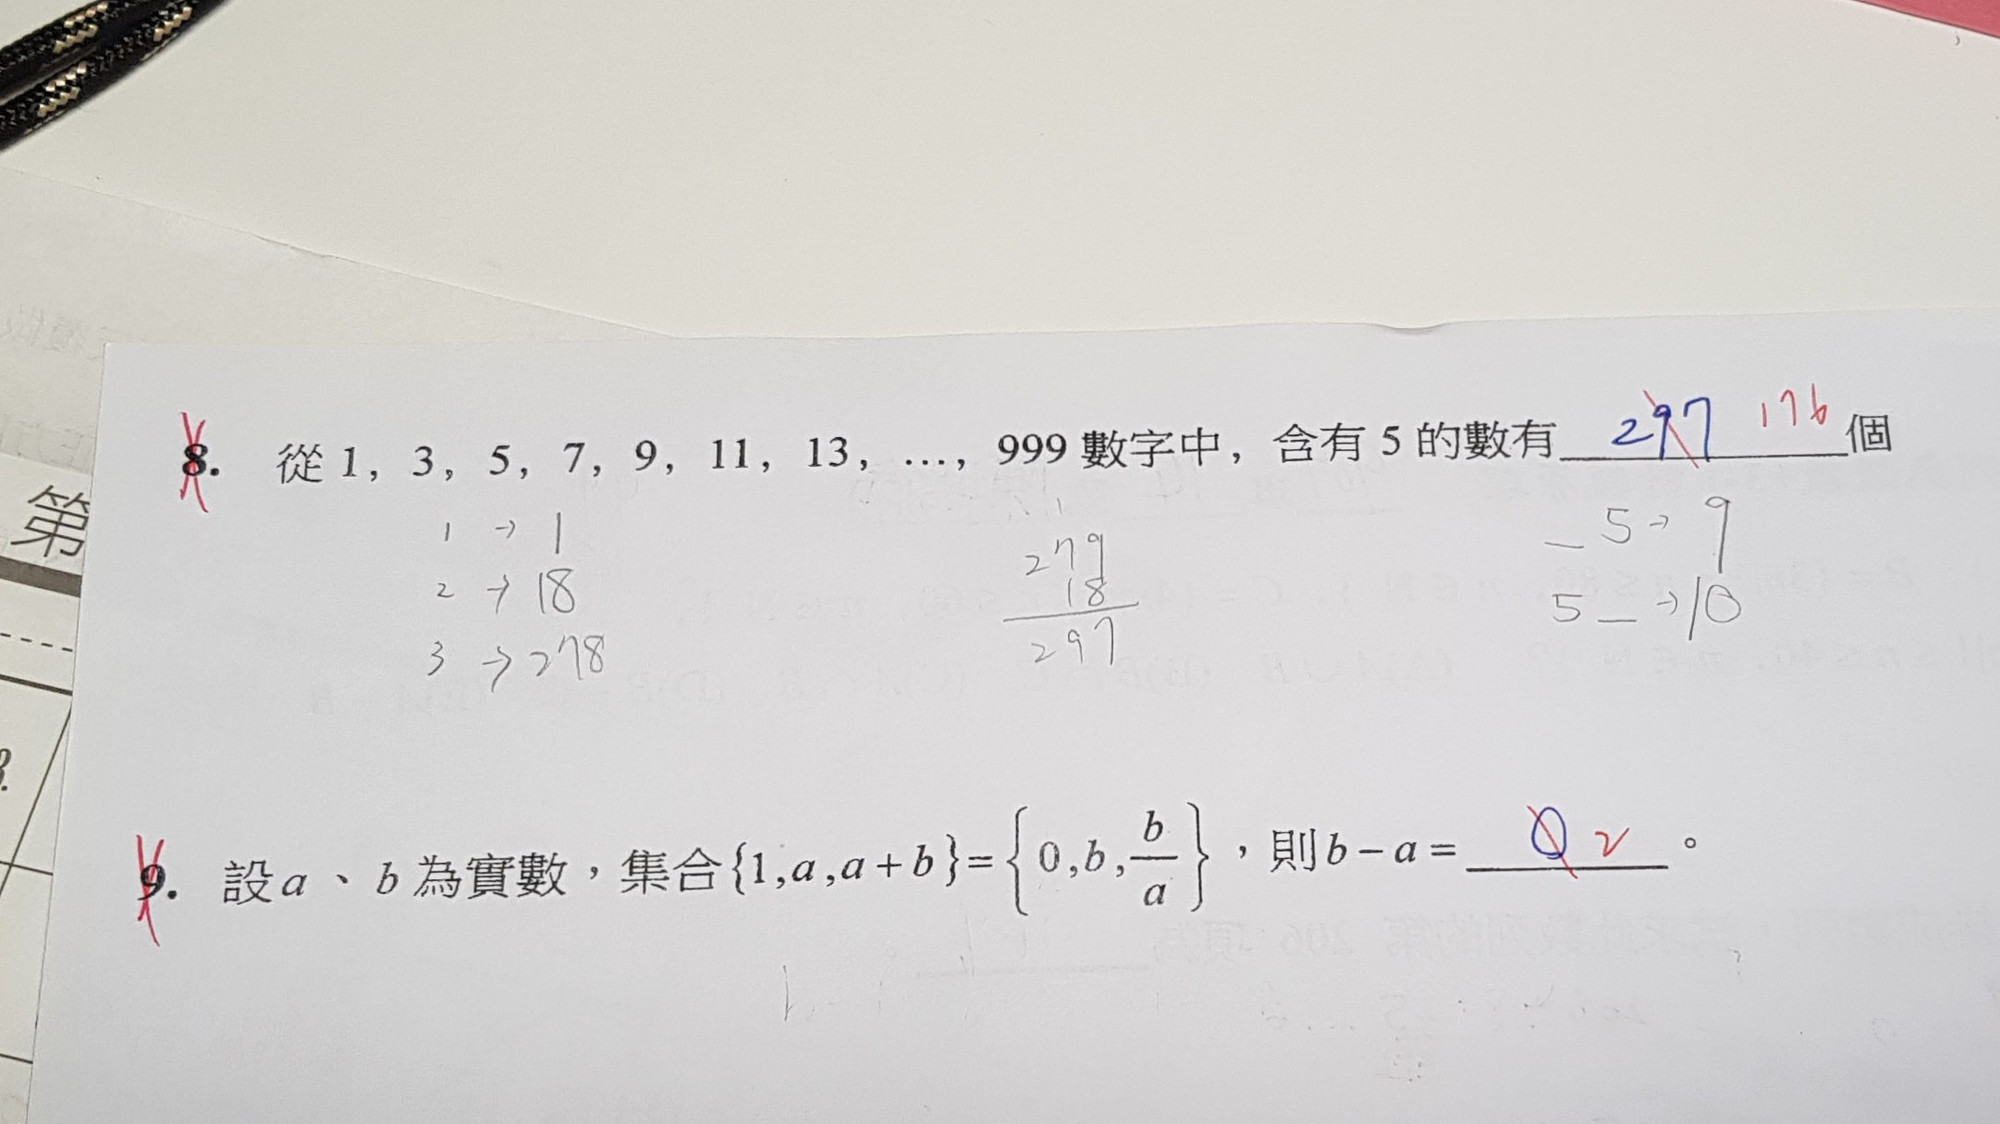 8. 從 1, 3, 5, 7, 9, 11, 13, …, 999 數字中,含有 5 的數有 297 176 個
1 → 1
2 → 18
3 → 278
279
18
297
_ 5 → 9
5 _ → 10
第
9. 設 a、b 為實數,集合{1, a, a + b} = {0, b, b/a},則 b − a = 0 2 。